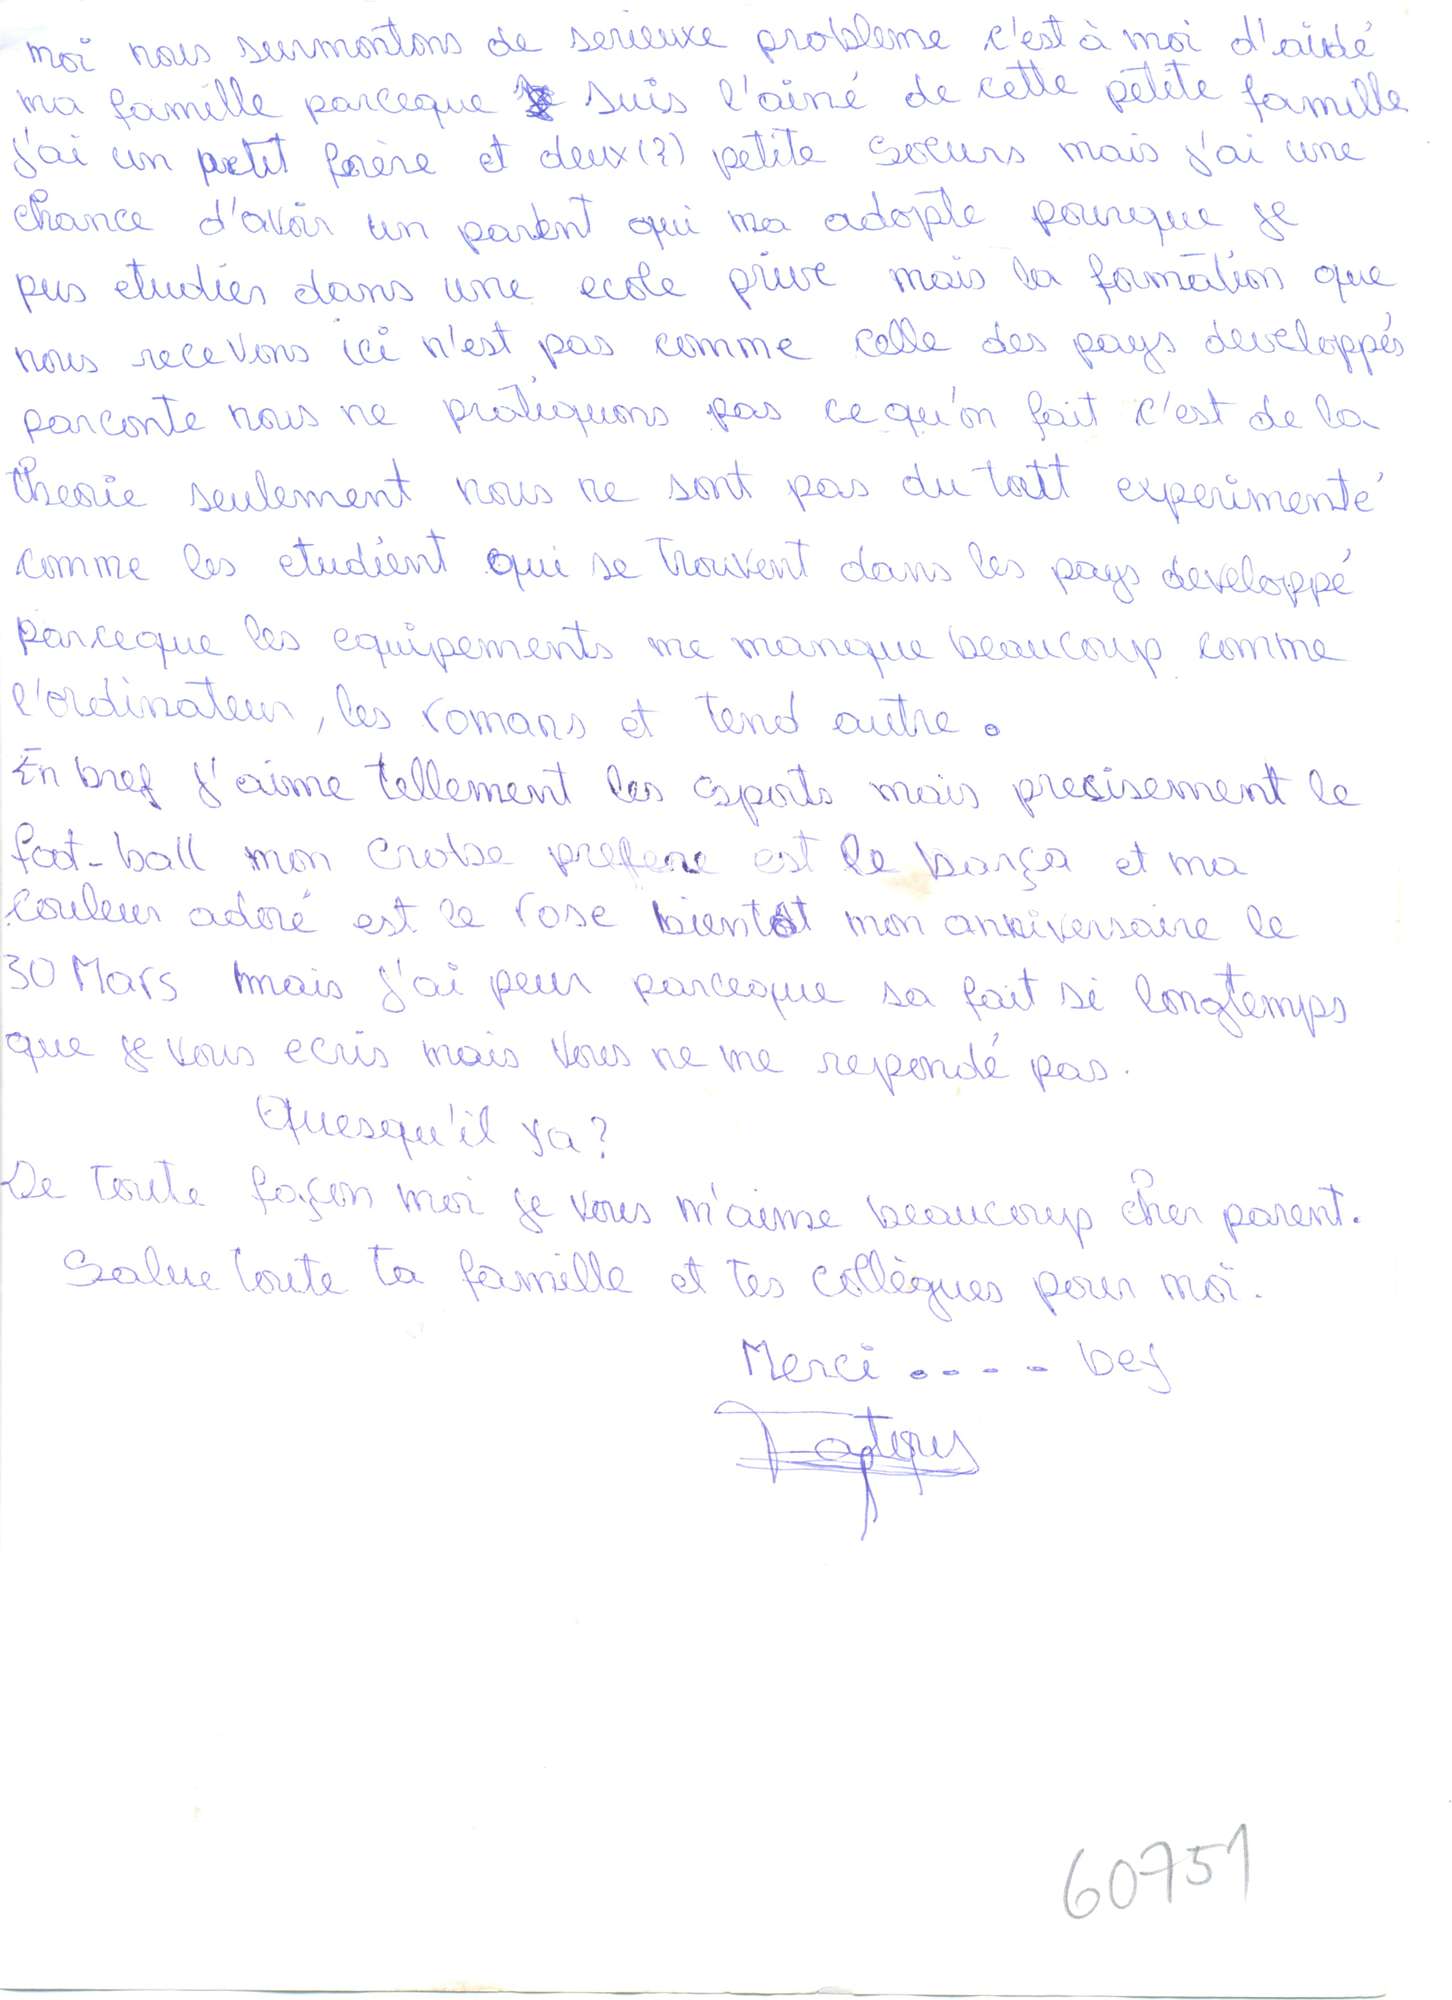 moi nous surmontons de serieuxe probleme c'est à moi d'aidé
ma famille parceque suis l'ainé de cette petite famille
j'ai un petit frère et deux (2) petite soeurs mais j'ai une
chance d'avoir un parent qui ma adopte pourque je
pus etudier dans une ecole prive mais la formation que
nous recevons ici n'est pas comme celle des pays developpés
parconte nous ne pratiquons pas ce qu'on fait c'est de la
theorie seulement nous ne sont pas du tott experimenté
comme les etudient qui se trouvent dans les pays developpé
parceque les equipements me manque beaucoup comme
l'ordinateur, les romans et tend autre.
En bref j'aime tellement les sports mais precisement le
foot-ball mon crobe prefere est le barça et ma
couleur adoré est le rose bientôt mon anniversaire le
30 Mars mais j'ai peur parceque sa fait si longtemps
que je vous ecris mais vous ne me repondé pas.
Quesqu'il ya?
De toute façon moi je vous m'aime beaucoup cher parent.
Salue toute ta famille et tes collègues pour moi.
Merci .---- bey
60751